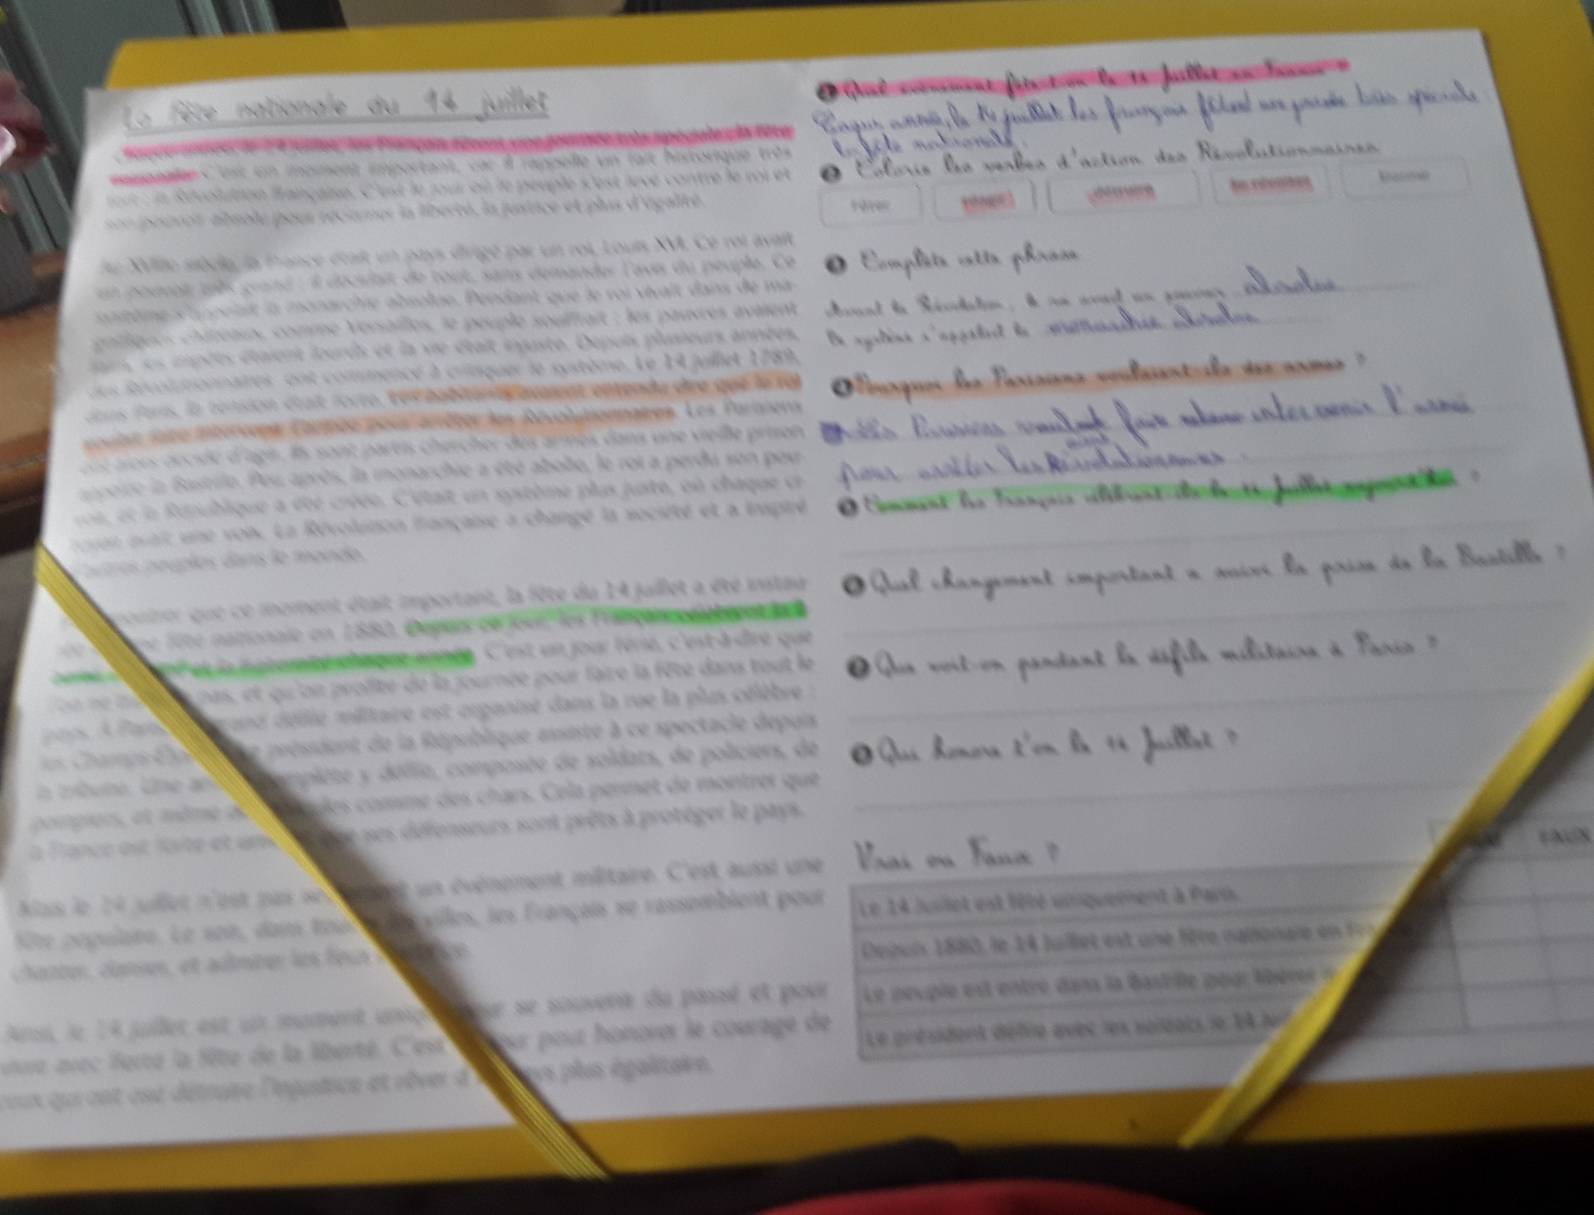 La fête nationale du 14 juillet
Chaque année, le 14 juillet, les Français fêtent une journée très spéciale : la fête
nationale. C'est un moment important, car il rappelle un fait historique très
fort : la Révolution française. C'est le jour où le peuple s'est levé contre le roi et
son pouvoir absolu pour réclamer la liberté, la justice et plus d'égalité.
Au XVIIIe siècle, la France était un pays dirigé par un roi, Louis XVI. Ce roi avait
un pouvoir très grand : il décidait de tout, sans demander l'avis du peuple. Ce
système s'appelait la monarchie absolue. Pendant que le roi vivait dans de ma-
gnifiques châteaux, comme Versailles, le peuple souffrait : les pauvres avaient
les impôts étaient lourds et la vie était injuste. Depuis plusieurs années,
des Révolutionnaires ont commencé à critiquer le système. Le 14 juillet 1789,
dans Paris, la tension était forte. Les habitants avaient entendu dire que le roi
voulait faire intervenir l'armée pour arrêter les Révolutionnaires. Les Parisiens
ont alors décidé d'agir. Ils sont partis chercher des armes dans une vieille prison
appelée la Bastille. Peu après, la monarchie a été abolie, le roi a perdu son pou-
voir, et la République a été créée. C'était un système plus juste, où chaque ci-
toyen avait une voix. La Révolution française a changé la société et a inspiré
d'autres peuples dans le monde.
montrer que ce moment était important, la fête du 14 juillet a été instau-
fête nationale en 1880. Depuis ce jour, les Français célèbrent la
chaque année. C'est un jour férié, c'est-à-dire que
pas, et qu'on profite de la journée pour faire la fête dans tout le
pays. À Paris, grand défilé militaire est organisé dans la rue la plus célèbre :
les Champs-Élysées président de la République assiste à ce spectacle depuis
la tribune. Une complète y défile, composée de soldats, de policiers, de
pompiers, et même comme des chars. Cela permet de montrer que
la France est forte et ses défenseurs sont prêts à protéger le pays.
Mais le 14 juillet n'est pas un événement militaire. C'est aussi une
fête populaire. Le soir, dans villes, les Français se rassemblent pour
chanter, danser, et admirer les feux
Ainsi, le 14 juillet est un moment se souvenir du passé et pour
vivre avec fierté la fête de la liberté. C'est pour honorer le courage de
ceux qui ont osé détruire l'injustice et rêver plus égalitaire.
Quel événement fête-t-on le 14 Juillet en France ?
Chaque année, le 14 juillet les français fêtent une journée très spéciale
la fête nationale.
Colorie les verbes d'action des Révolutionnaires
Fêter
détruire
Se révolter
Complète cette phrase
Avant la Révolution, le roi avait un pouvoir absolue
Le système s'appelait la monarchie absolue
Pourquoi les Parisiens voulaient-ils des armes ?
Les Parisiens faire intervenir l'armé
pour arrêter les Révolutionnaires.
Comment les Français célèbrent-ils le 14 Juillet aujourd'hui ?
Quel changement important a suivi la prise de la Bastille ?
Que voit-on pendant le défilé militaire à Paris ?
Qui honore t'on le 14 Juillet ?
Vrai ou Faux ?
FAUX
Le 14 Juillet est fêté uniquement à Paris.
Depuis 1880, le 14 Juillet est une fête nationale en
Le peuple est entré dans la Bastille pour libérer
Le président défile avec les soldats le 14